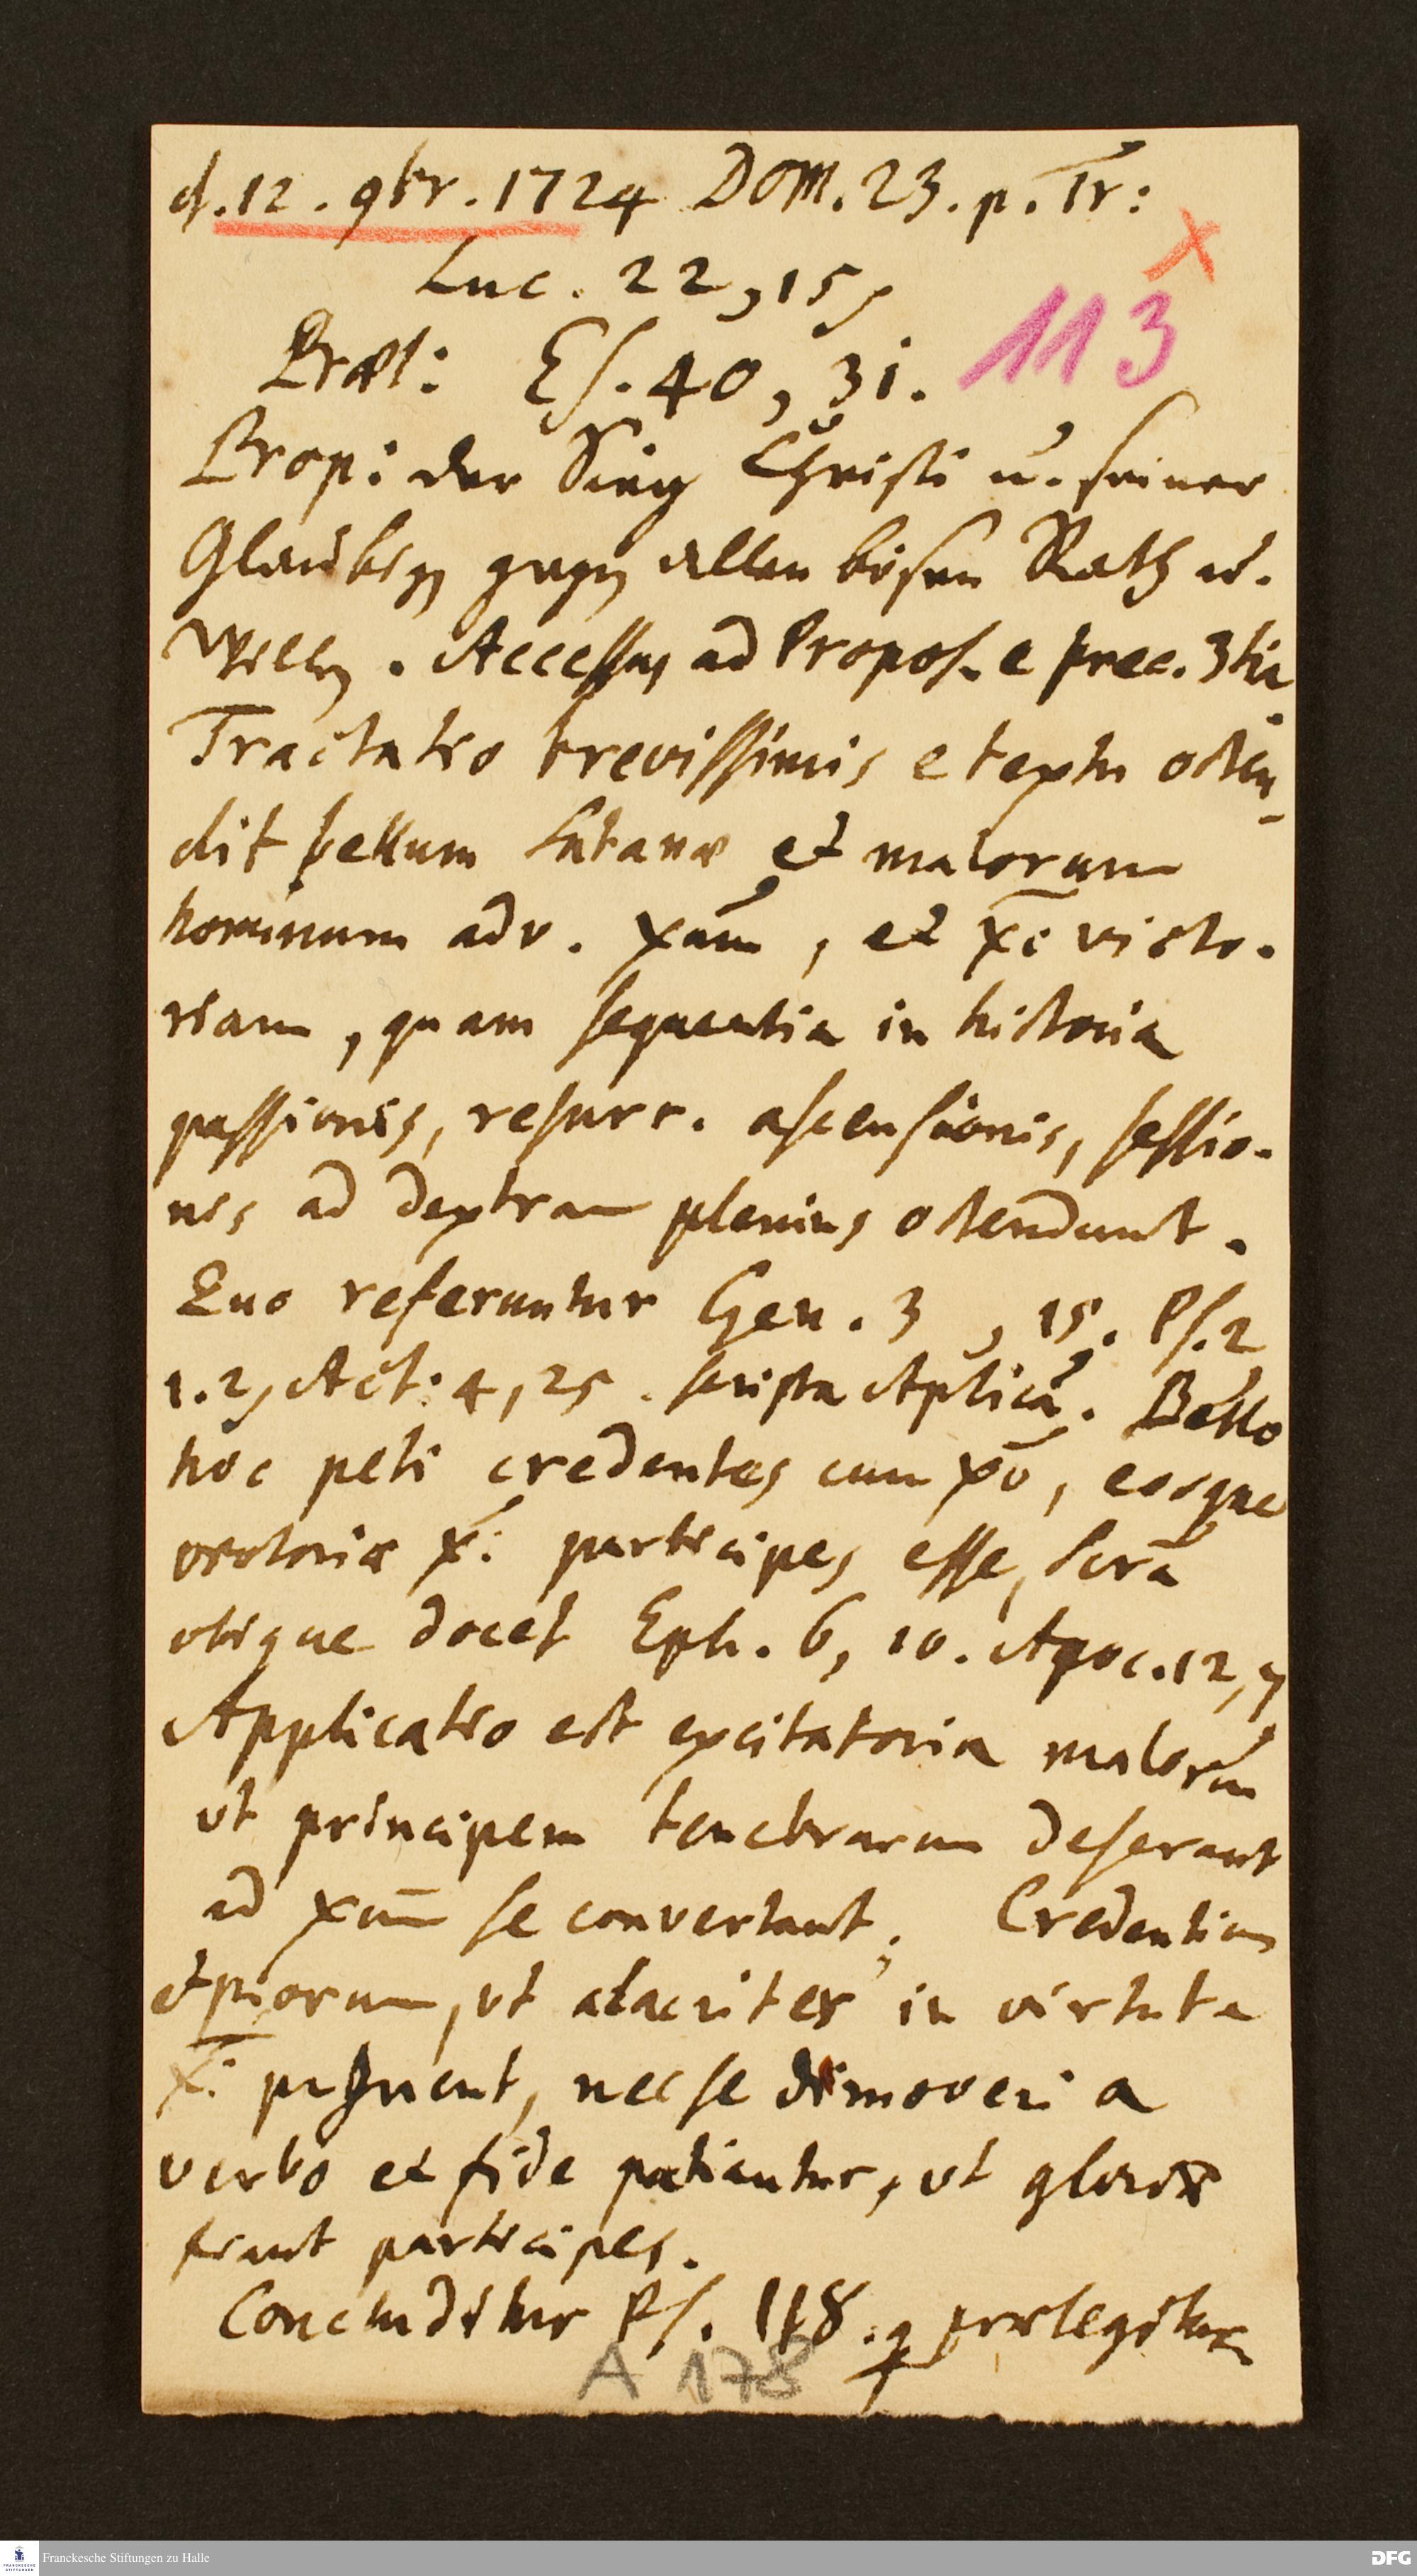 d. 12. 9br. 1724 Dom. 23. p. Tr:
x
Luc. 22, 15,
113
Præl: Es. 40, 31.
Prop: der Sieg Christi u. seiner
Glaubigen gegen allen bösen Rath u.
Willen. Accessus ad Propos. e prec. 3tia
Tractatio brevissimis e textu osten-
dit bellum Satanæ et malorum
hominum adv. Xum, et Xi victo-
riam, quam sequentia in historia
passionis, resurr. ascensionis, sessio-
nis ad dextram plenius ostendunt.
Quo referuntur Gen. 3, 15. Ps. 2
1. 2, Act: 4, 25. scripta Aplica. Bello
hoc peti credentes cum Xo, eosque
victoriæ Xi participes esse, Scra
ubique docet Eph. 6, 10. Apoc. 12, 7
Applicatio est excitatoria malorum
ut principem tenebrarum deserant
ad Xum se convertant; Credentium
et piorum, ut alacriter in virtute
Xi pugnent, nec se dimoveri a
verbo et fide patiantur, ut gloriæ
fiant participes.
Concluditur Ps. 118. q prælegitur
A 178
Franckesche Stiftungen zu Halle
DFG